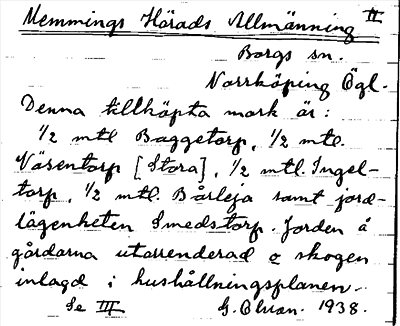 Memmings Härads Allmänning II
Borgs sn.
Norrköping Ögl.
Denna tillköpta mark är:
1/2 mtl Baggetorp, 1/2 mtl.
Väsentorp [Stora], 1/2 mtl. Ingel-
torp, 1/2 mtl. Bårleja samt jord-
lägenheten Smedstorp. Jorden å
gårdarna utarrenderad o skogen
inlagd i hushållningsplanen.
Se III G. Olsson. 1938.